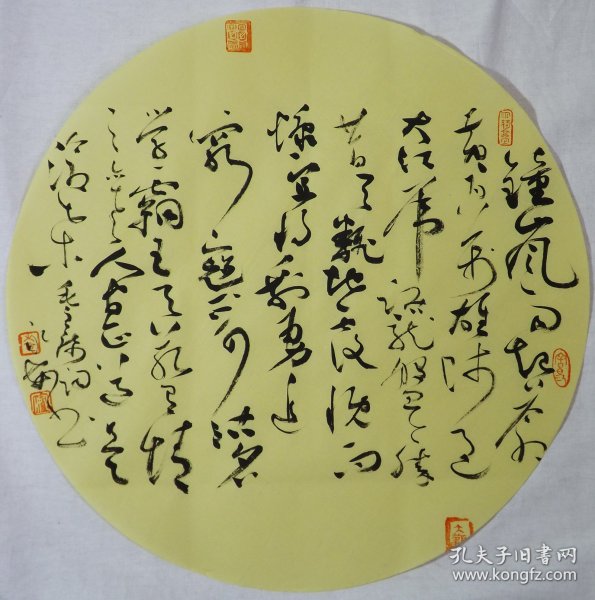 鐘山風雨起蒼
黄百万雄師过
大江虎踞龙盘今勝
昔天翻地覆慨而
慷宜将剩勇追
窮寇不可沽名
学霸王天若有情
天亦老人间正道是
沧桑 毛主席词 书
孔夫子旧书网
www.kongfz.com